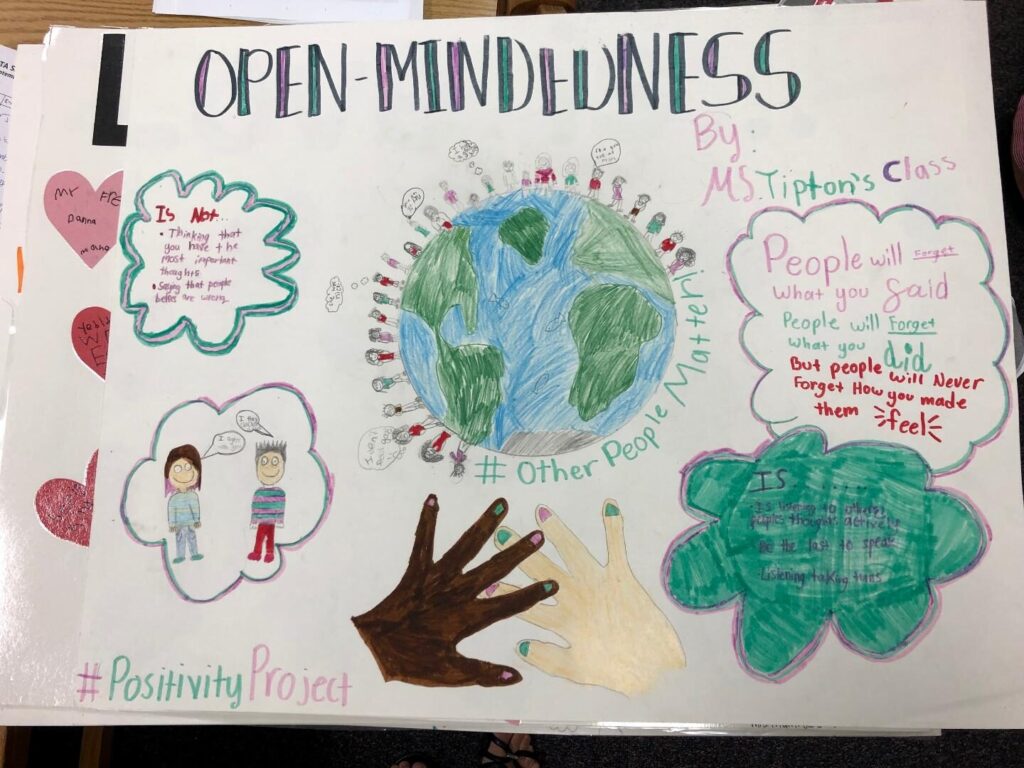 OPEN-MINDEDNESS
By:
MS. Tipton's Class
MY FRE
Danna
Is Not...
• Thinking that
you have the
most important
thoughts
• Saying that people
belief are wrong
People will Forget
what you said
People will Forget
what you did
But people will Never
Forget How you made
them feel
# Other People Matter!
I agree
with you
IS......
Is listening to others
peoples thoughts actively
Be the last to speak
Listening taking turns
#PositivityProject